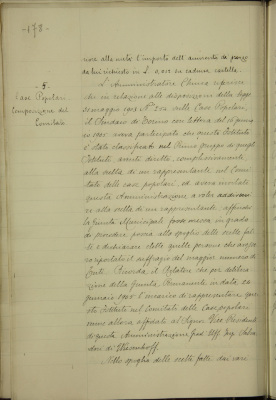 -478-
-5-
Case Popolari
Composizione del
Comitato
zione alla metà l'importo dell'aumento da
da lui richiesto in L. cadauna cartella.
L'Amministratore riferisce
che in relazione alle disposizioni della legge
31 maggio 1903 N° 254 sulle Case Popolari,
il Sindaco di Torino con lettera del 16 giugno
1905 aveva partecipato che questo Istituto
è stato classificato nel Primo gruppo di quegli
Istituti aventi diritto complessivamente
alla scelta di un rappresentante nel Comi
tato delle case popolari, ed aveva invitato
questa Amministrazione a voler
re alla scelta di un rappresentante affinchè
la Giunta Municipale fosse messa in grado
di procedere poscia allo spoglio delle scelte fat
te e dichiarare eletto quello persona che avesse
riportato il suffragio del maggior numero di
Enti. Ricorda il Relatore che per delibe
razione della Giunta Permanente in data 30
gennaio l'incarico di rappresentare que
sto Istituto nel Comitato delle Case popolari
venne allora affidato al Signor Vice Presidente
di questa Amministrazione Ing. Salva
dori di Wiesenhoff.
Allo spoglio delle scelte fatte dai vari